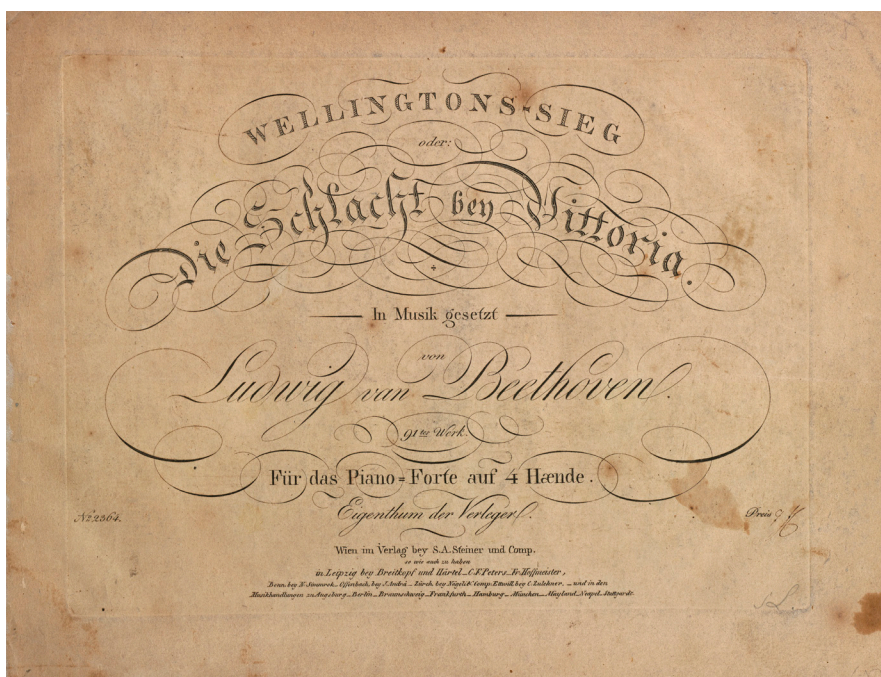 WELLINGTONS-SIEG
oder:
Die Schlacht bey Vittoria.
In Musik gesetzt
von
Ludwig van Beethoven.
91ter Werk.
Für das Piano=Forte auf 4 Hænde.
Eigenthum der Verleger.
No. 2364.
Preis
Wien im Verlag bey S.A. Steiner und Comp.
so wie auch zu haben
in Leipzig bey Breitkopf und Härtel_C.F. Peters_Fr. Hofmeister,
Bonn bey N. Simrock_Offenbach, bey J. André_Zürch. bey Nägeli & Comp. Eltwill, bey C. Zulehner._und in den
Musikhandlungen zu Augsburg_Berlin_Braunschweig_Frankfurth_Hamburg_München_Mayland_Neapel_Stuttgardt.